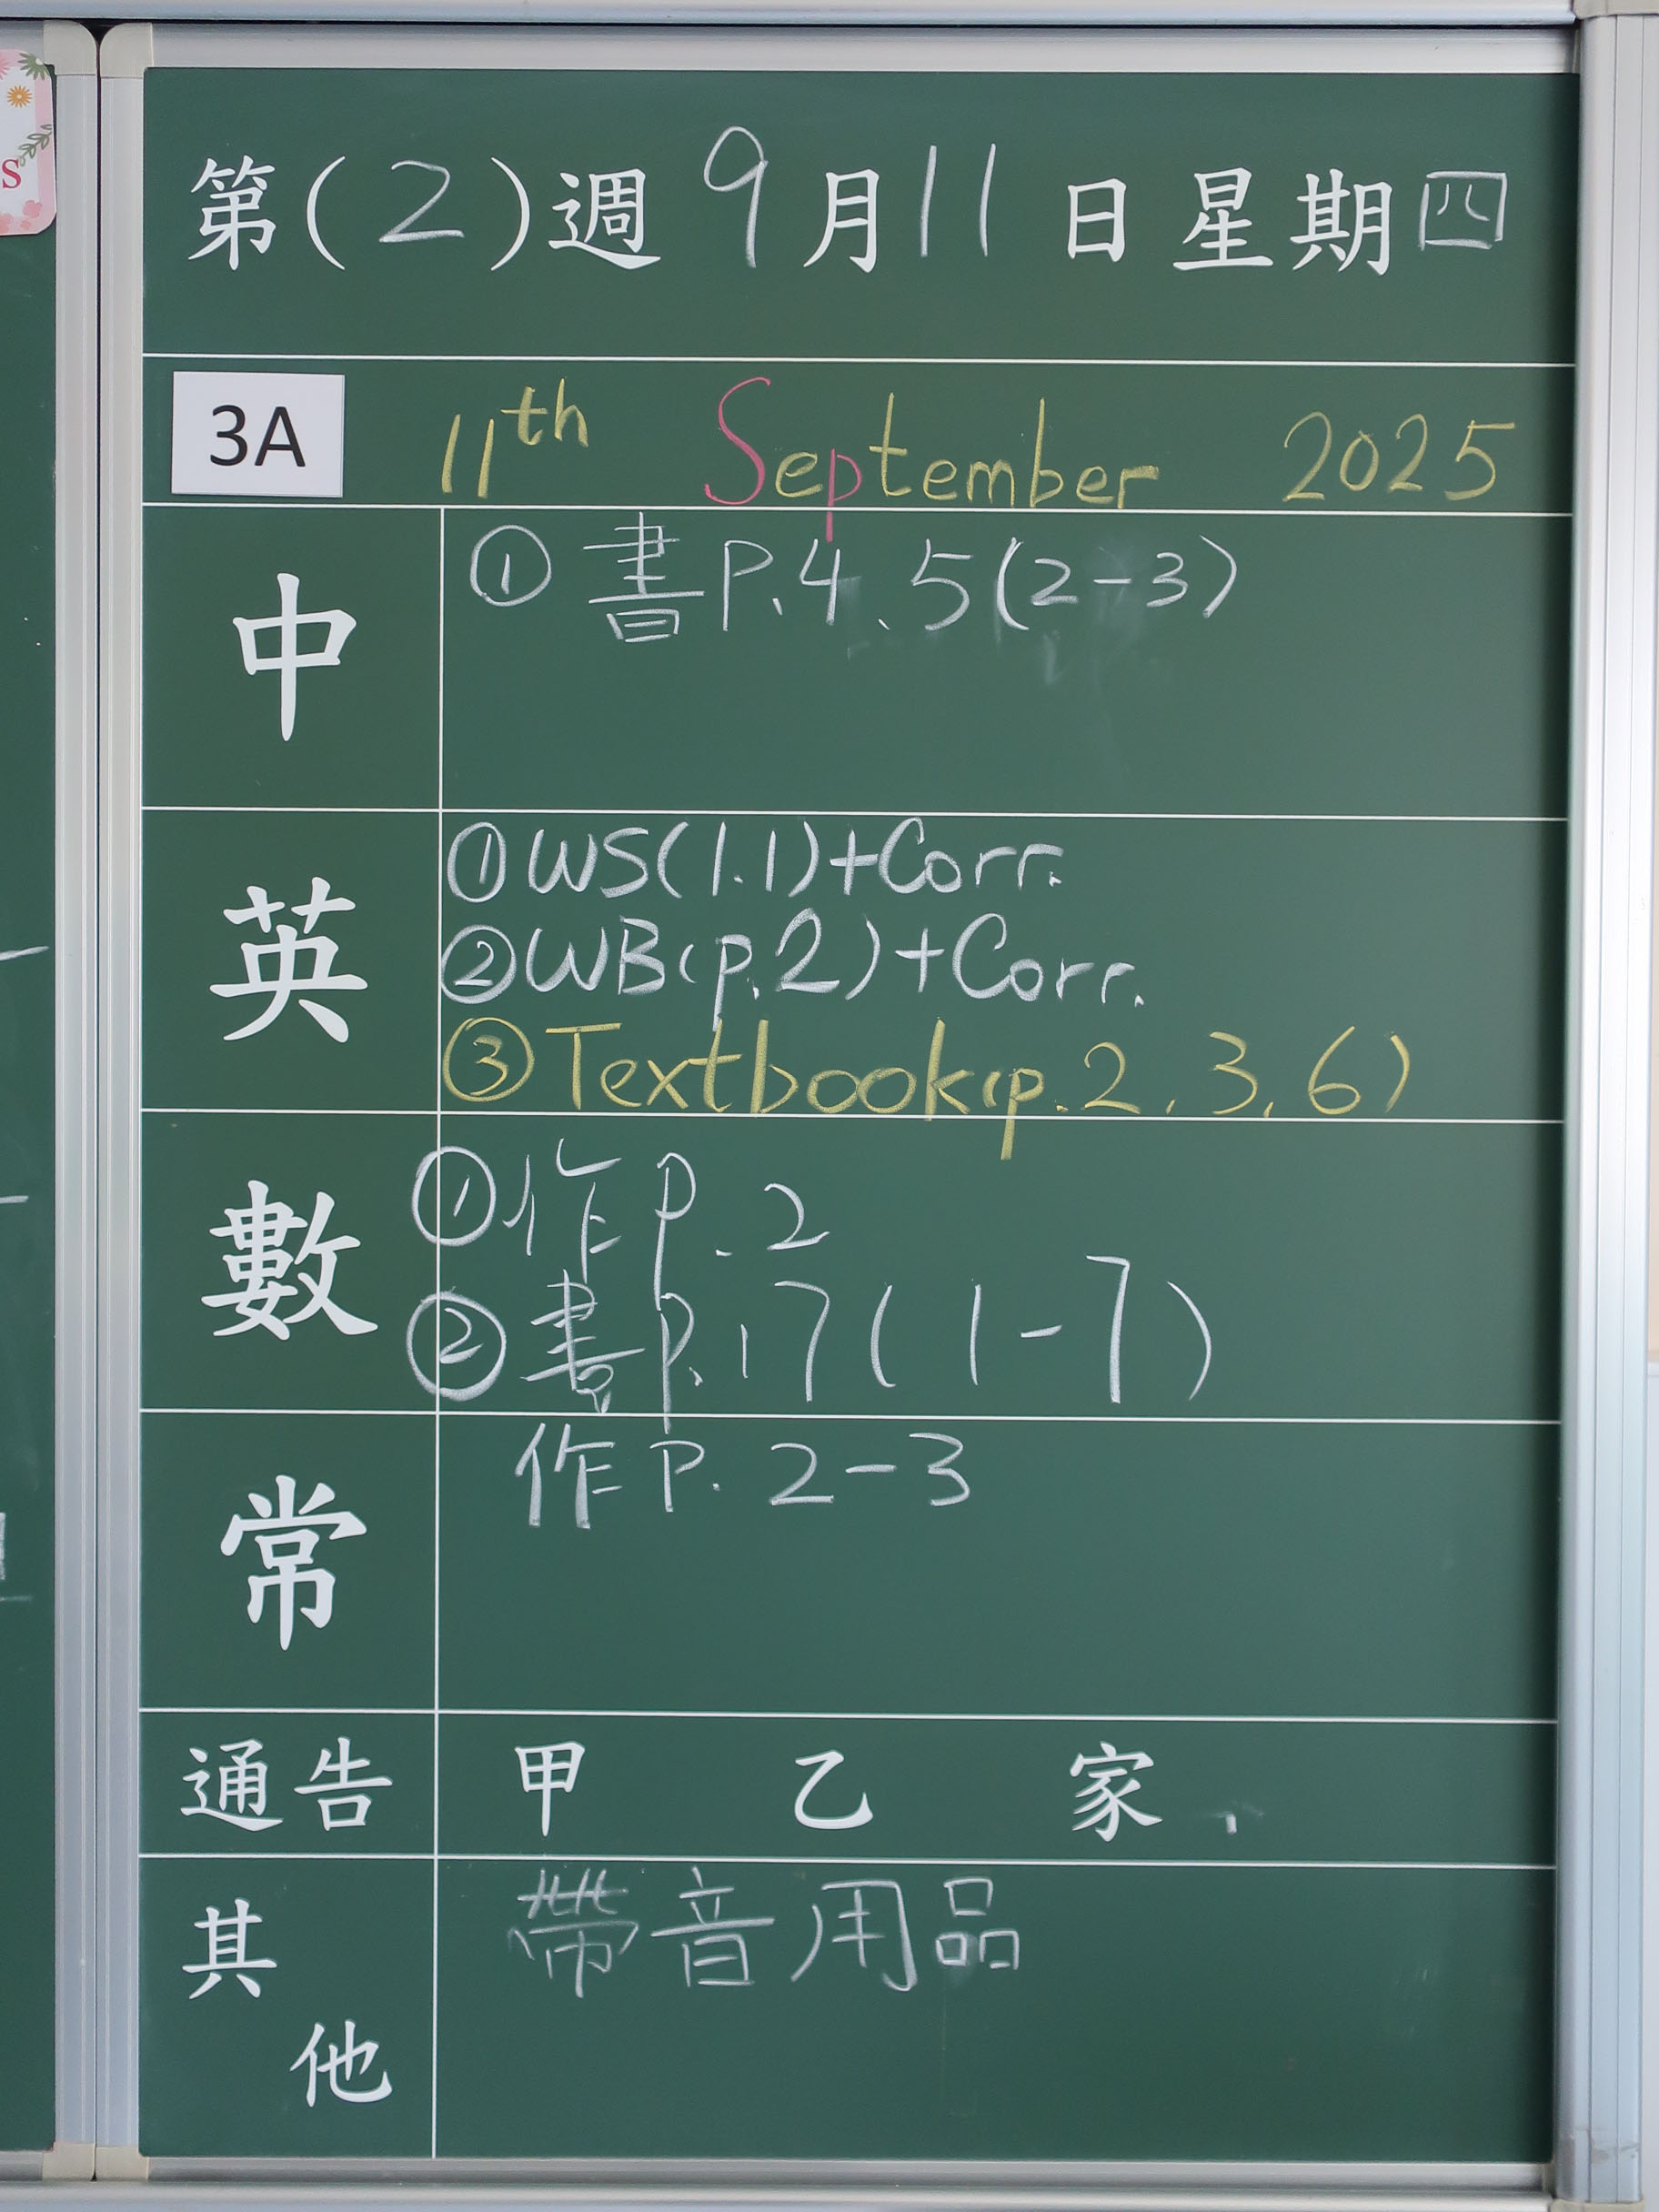 S
第(2)週9月11日星期四
3A 11th September 2025
中 ①書P.4、5(2-3)
英 ①WS(1.1)+Corr.
②WB(p.2)+Corr.
③Textbook(p.2,3,6)
數 ①作P.2
②書P.17(1-7)
常 作P.2-3
通告 甲 乙 家
其他 帶音用品